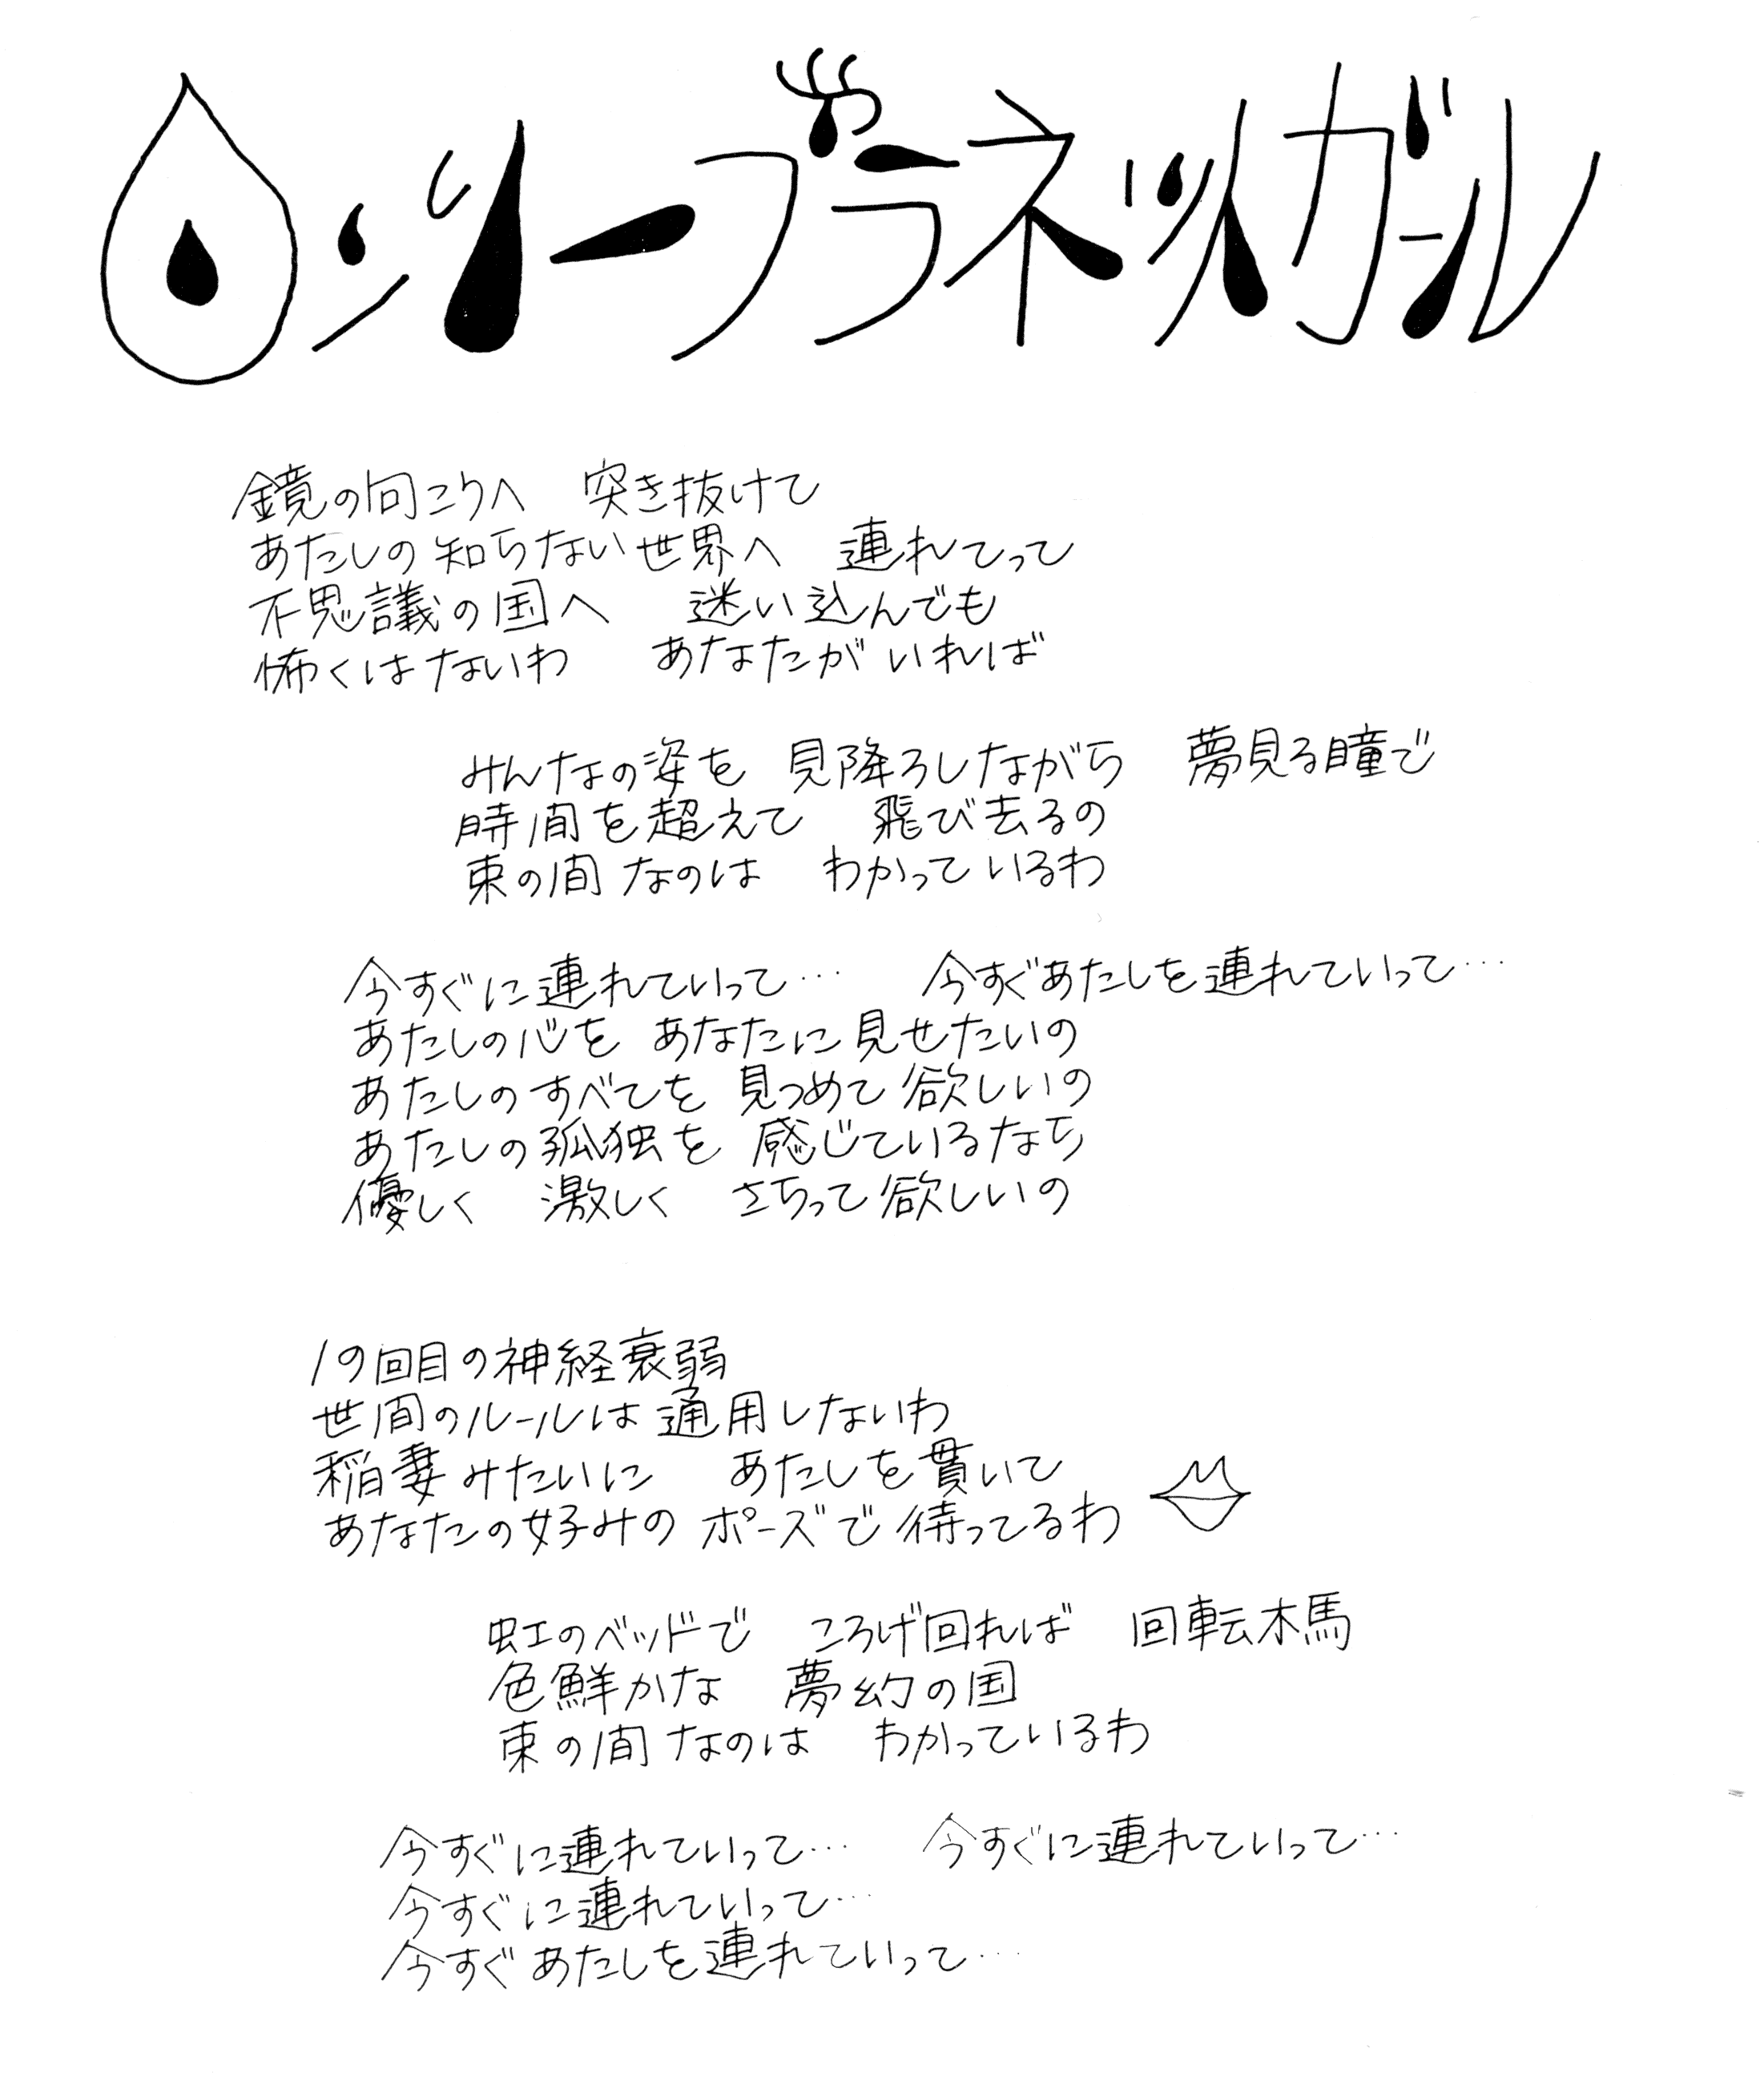 ロンリープラネットガール
鏡の向こうへ　突き抜けて
あたしの知らない世界へ　連れてって
不思議の国へ　迷い込んでも
怖くはないわ　あなたがいれば
みんなの姿を　見降ろしながら　夢見る瞳で
時間を超えて　飛び去るの
束の間なのは　わかっているわ
今すぐに連れていって…　今すぐあたしを連れていって…
あたしの心を　あなたに見せたいの
あたしのすべてを　見つめて欲しいの
あたしの孤独を　感じているなら
優しく　激しく　さらって欲しいの
19回目の神経衰弱
世間のルールは通用しないわ
稲妻みたいに　あたしを貫いて
あなたの好みのポーズで待ってるわ
虹のベッドで　ころげ回れば　回転木馬
色鮮かな　夢幻の国
束の間なのは　わかっているわ
今すぐに連れていって…　今すぐに連れていって…
今すぐに連れていって…
今すぐあたしを連れていって…